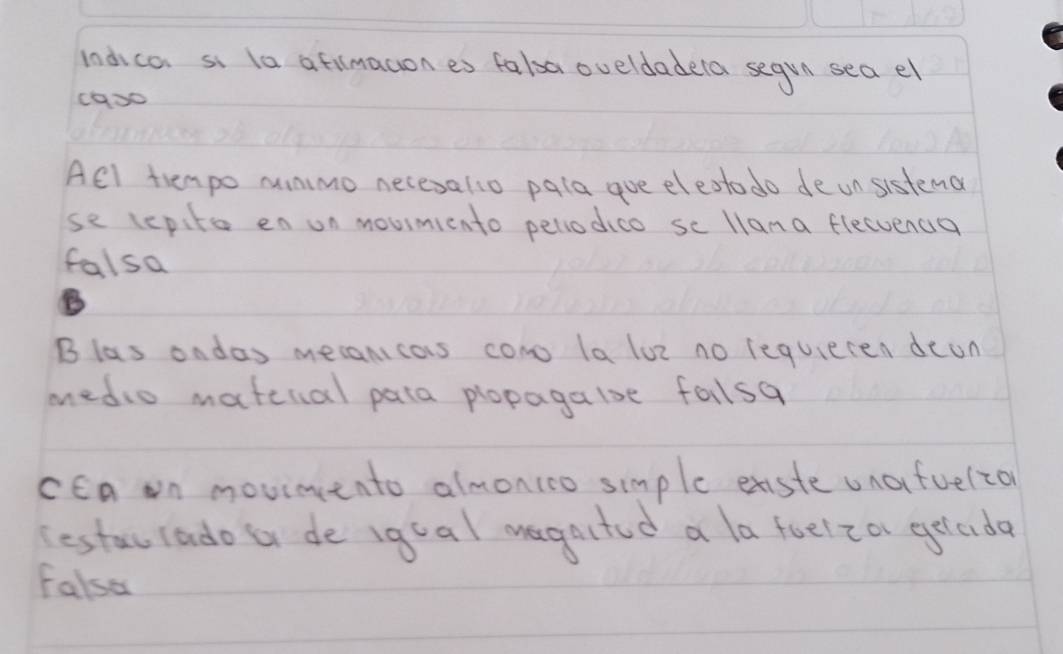 Indica si la afirmacion es falsa o verdadera segun sea el
caso
A El tiempo minimo necesario para que el estado de un sistema
se repita en un movimiento periodico se llama frecuencia
falsa
B
B las ondas mecanicas como la luz no requieren de un
medio material para propagarse falsa
C En un movimiento almonico simple existe una fuerza
restauradora de igual magnitud a la fuerza gercida
falsa